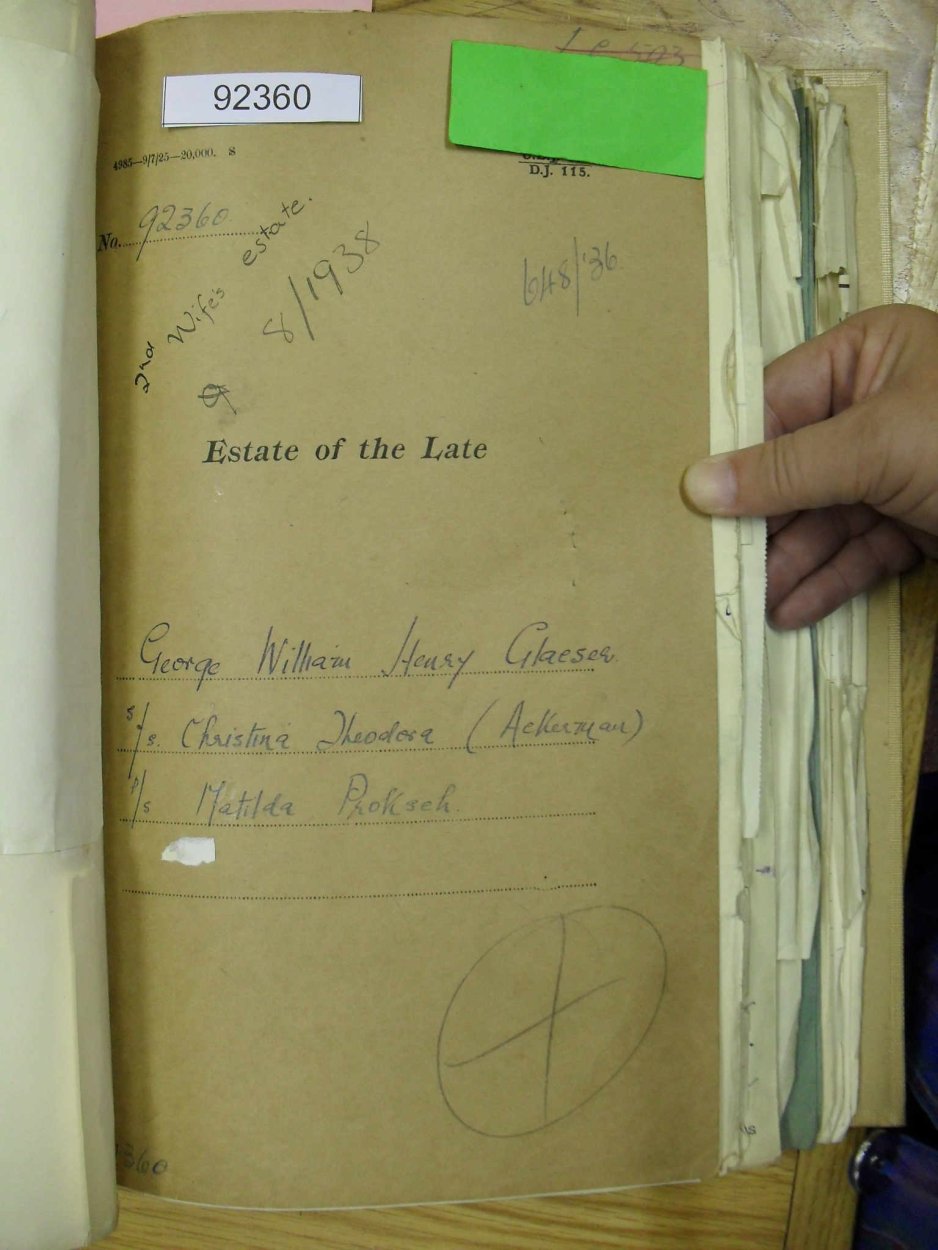 92360
4985—9/7/25—20,000. S
D.J. 115.
No. 92360
2nd Wife's estate.
8/1938
648/'36
Estate of the Late
George William Henry Glaeser
s/s. Christina Theodora (Ackerman)
p/s Matilda Proksch.
360